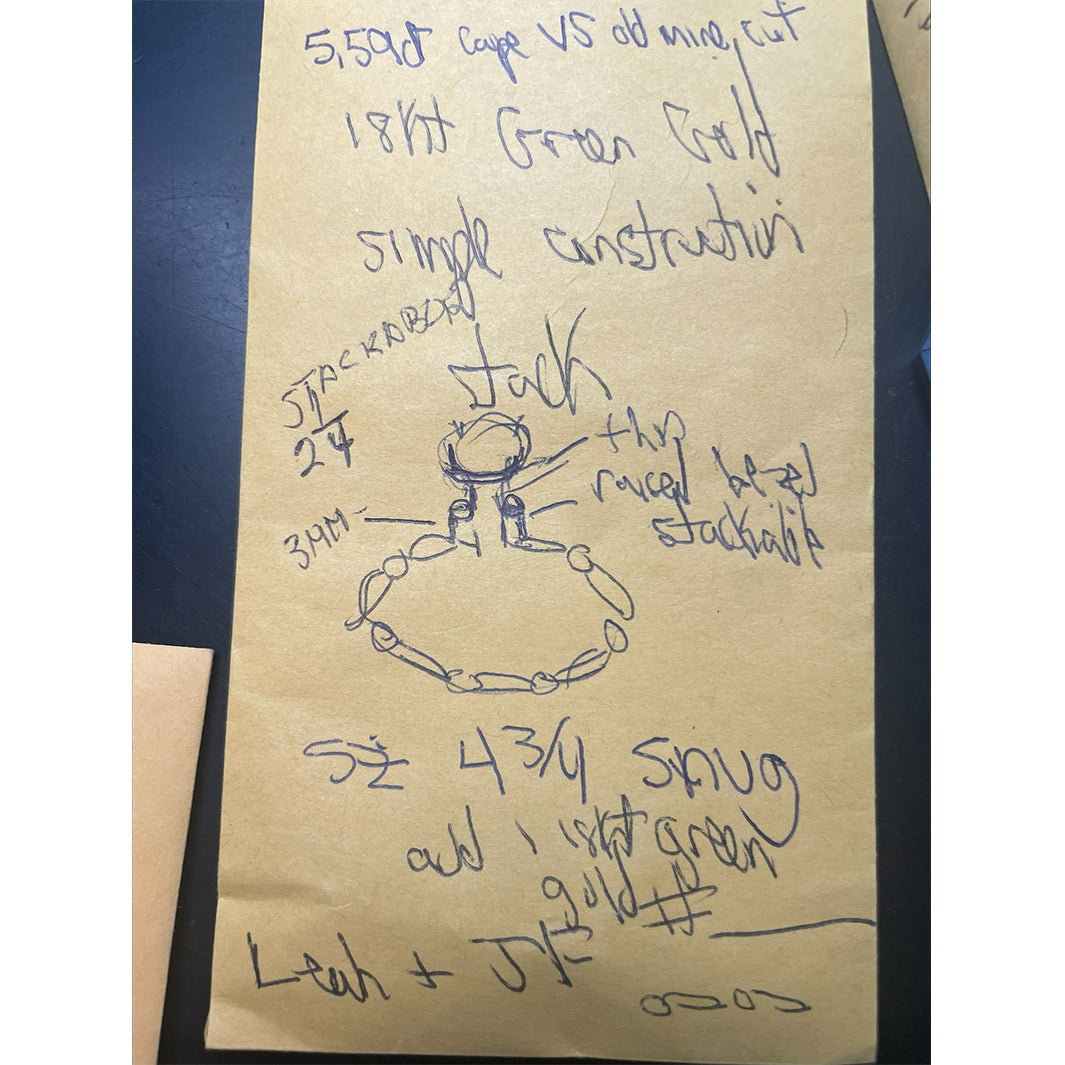 5,59ct Cape VS old mine cut
18kt Green Gold
simple construction
STACKABLE
24
stack
thin
bezel
stackable
3MM-
SZ 4 3/4 snug
add 1 18kt green
gold #
Leah + JF